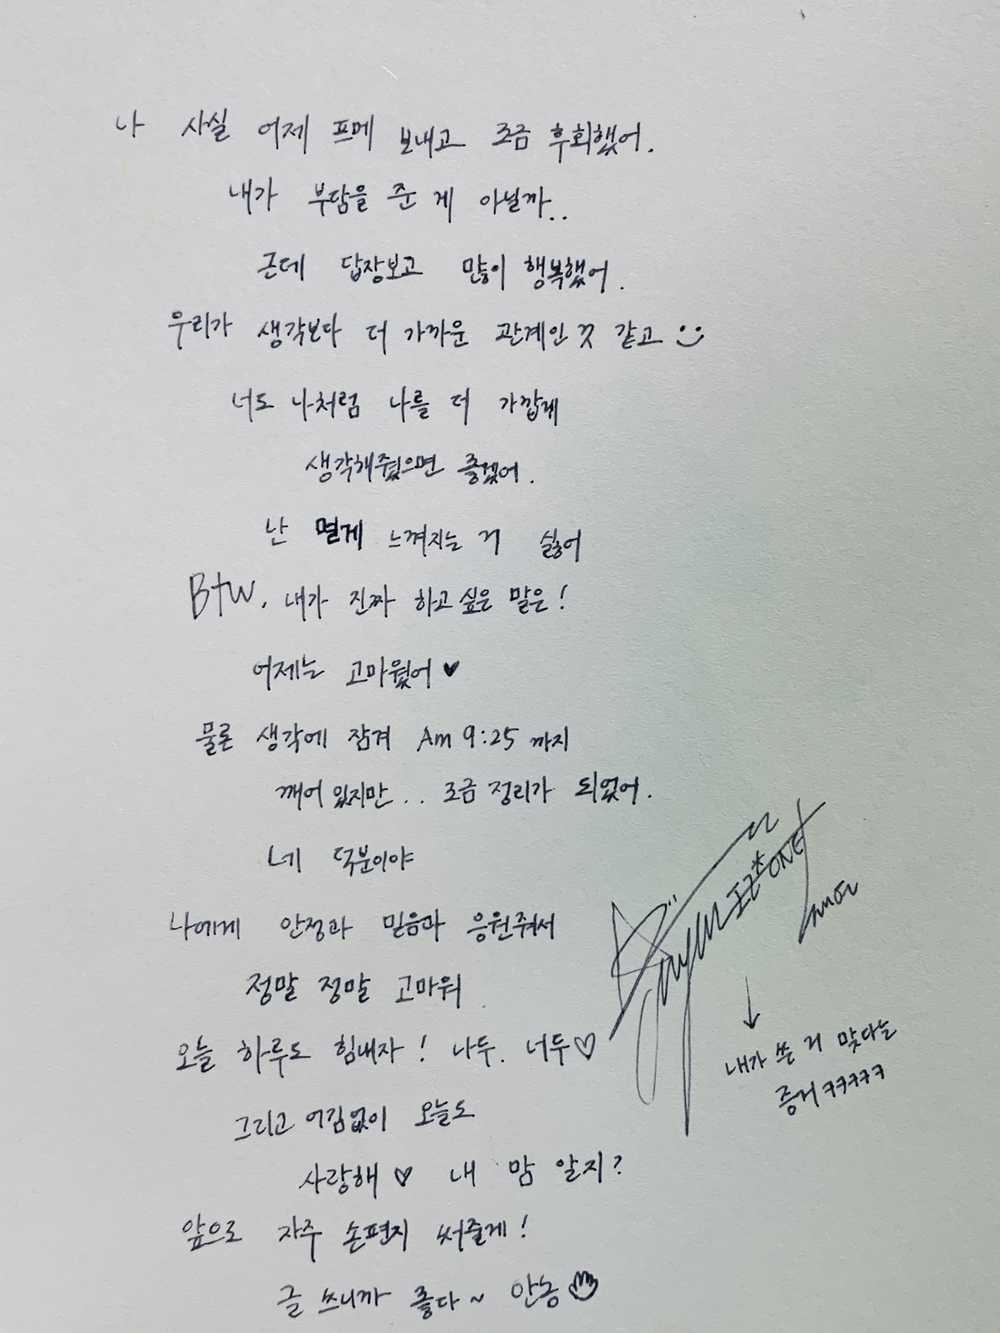 나 사실 어제 프메 보내고 조금 후회했어.
내가 부담을 준 게 아닐까..
근데 답장보고 많이 행복했어.
우리가 생각보다 더 가까운 관계인 것 같고 :)
너도 나처럼 나를 더 가깝게
생각해줬으면 좋겠어.
난 멀게 느껴지는 거 싫어
Btw. 내가 진짜 하고 싶은 말은!
어제는 고마웠어 ♥
물론 생각에 잠겨 Am 9:25 까지
깨어 있지만.. 조금 정리가 되었어.
네 덕분이야
나에게 안정과 믿음과 응원줘서
정말 정말 고마워
오늘 하루도 힘내자! 나두. 너두♡
그리고 어김없이 오늘도
사랑해♡ 내 맘 알지?
앞으로 자주 손편지 써줄게!
글 쓰니까 좋다~ 안농
ONE
↓
내가 쓴 거 맞다는
증거ㅋㅋㅋㅋㅋ